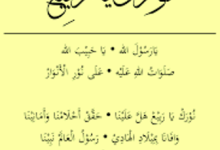 يَارَسُولَ الله • يَا حَبِيبَ الله
صَلَوَاتُ اللهِ عَلَيْهِ • عَلَى نُورِ الْأَنْوَارْ
نُورُكَ يَا رَبِيعُ هَلَّ عَلَيْنَا • حَقِّقْ أَحْلَامَنَا وَأَمَانِيْنَا
وَافَانَا بِمِيْلَادِ الْهَادِيْ • رَسُوْلُ الْعَالَمْ نَبِيْنَا